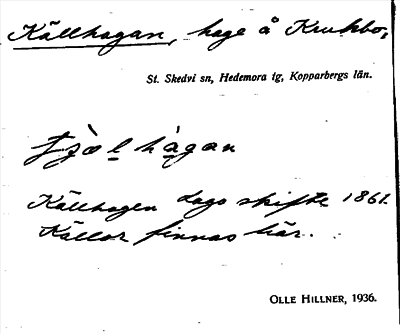 Källhagan, hage å Krukbo,
St. Skedvi sn, Hedemora tg, Kopparbergs län.
hàgan
Källhagen Laga skifte 1861.
Källor finnas här.
OLLE HILLNER, 1936.